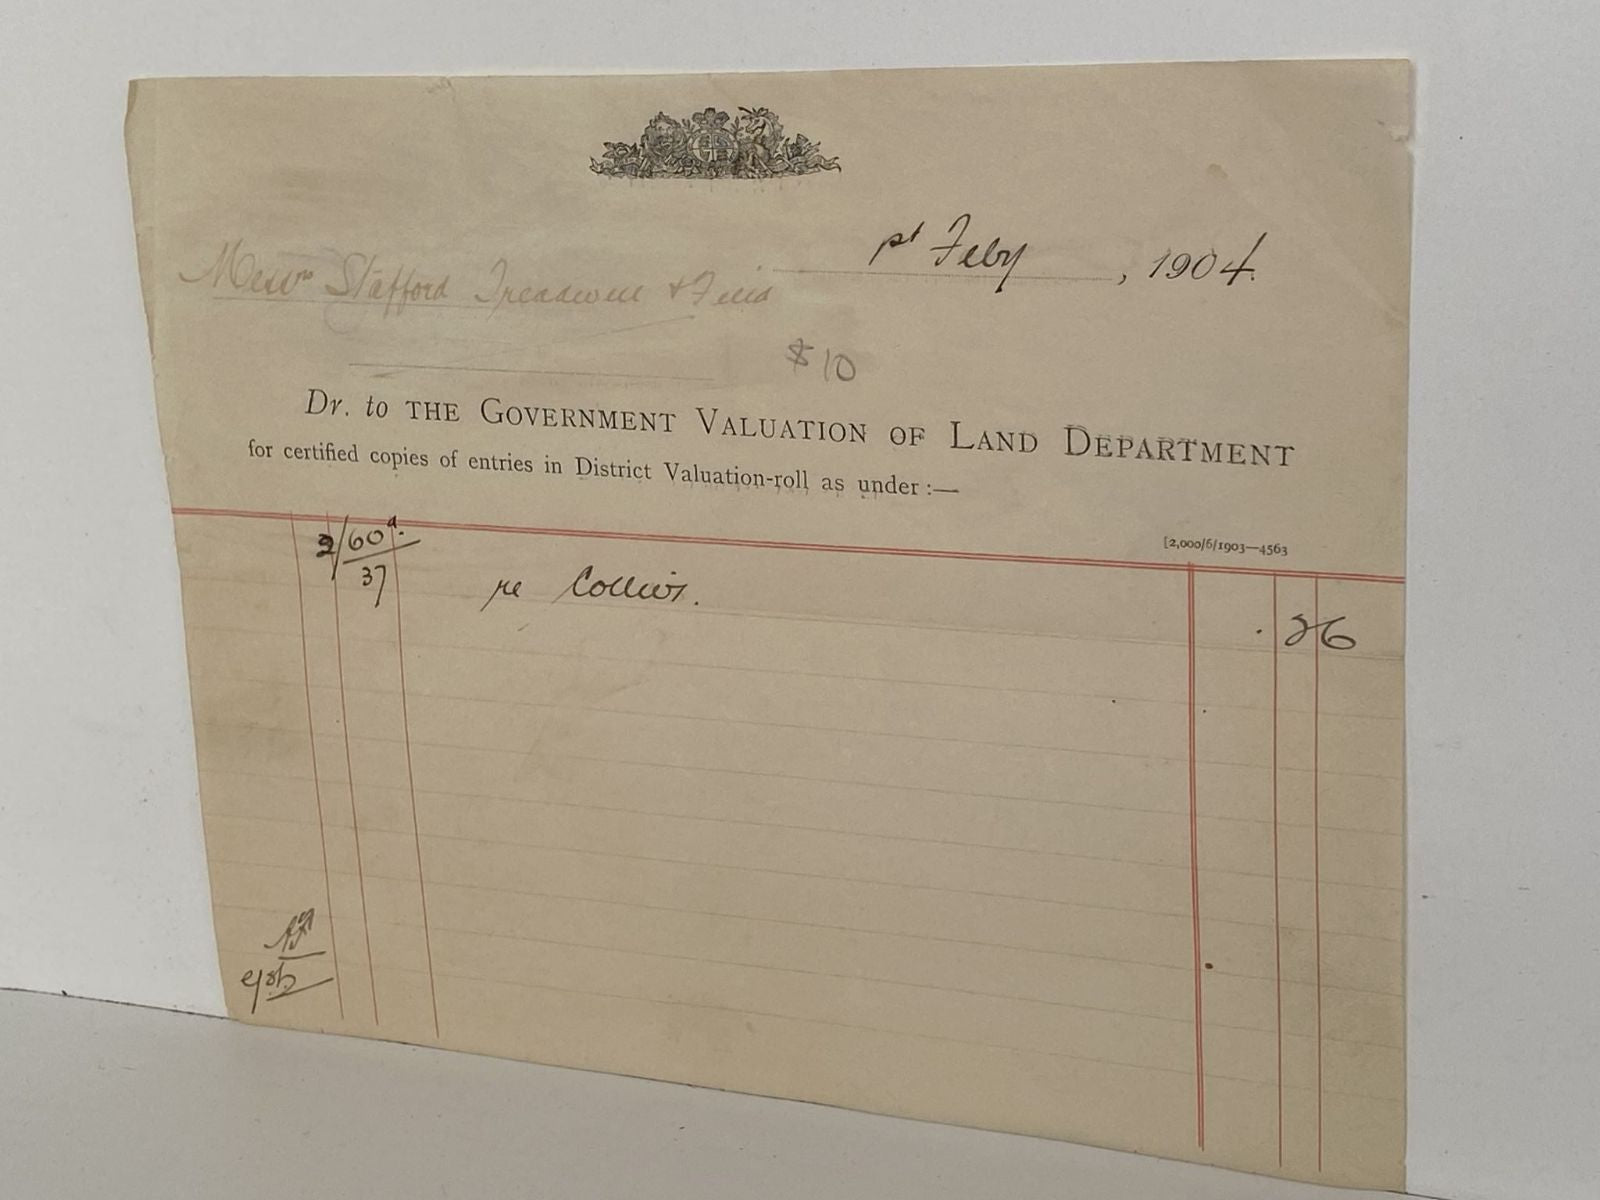 1st Feby, 1904.
Messrs Stafford Treadwell & Field
$10
Dr. to THE GOVERNMENT VALUATION OF LAND DEPARTMENT
for certified copies of entries in District Valuation-roll as under :—
[2,000/6/1903—4563
2/60a.
37
re Collins.
. 2 6